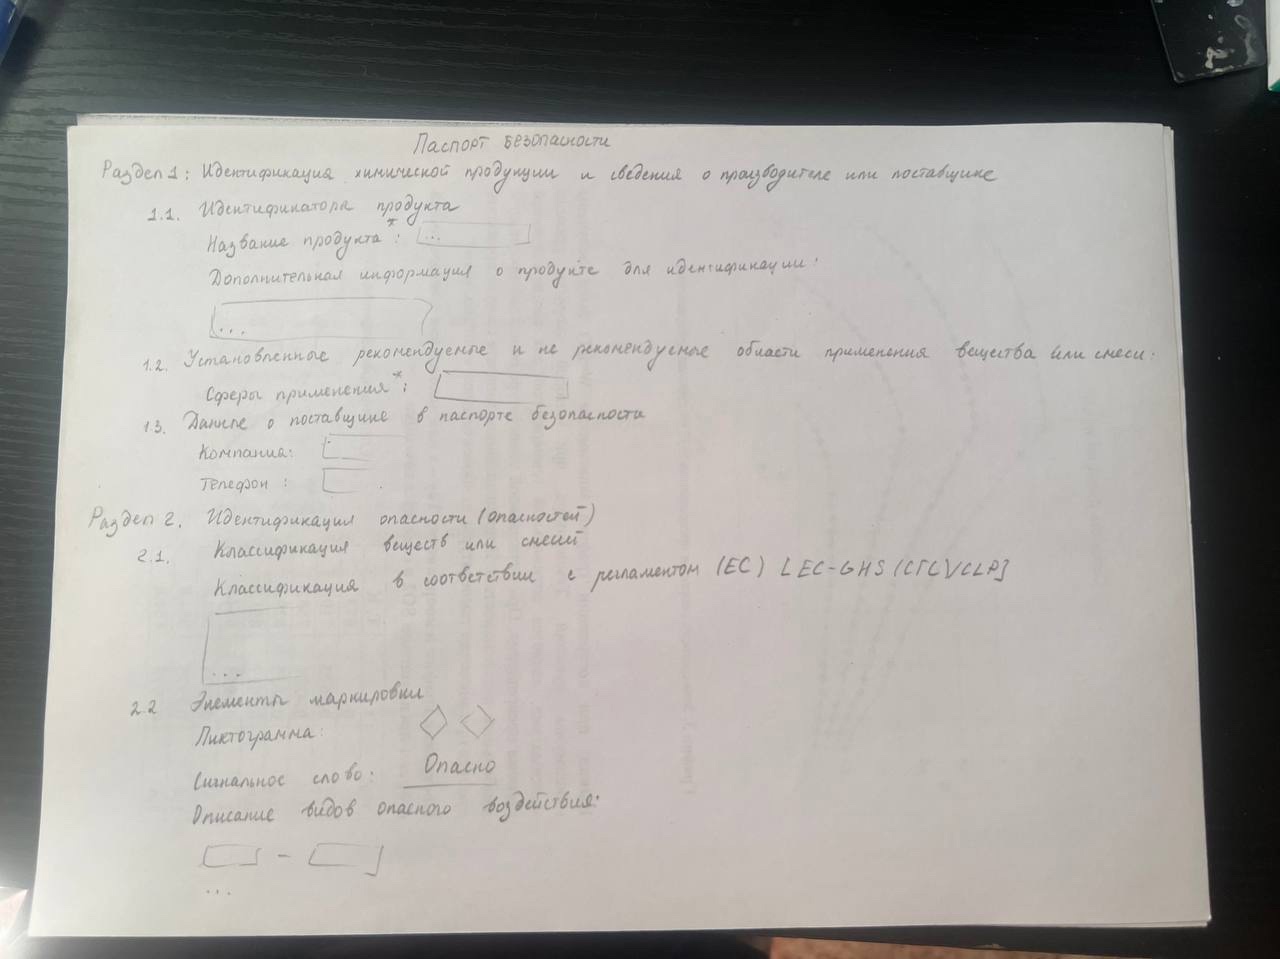 Паспорт безопасности
Раздел 1: Идентификация химической продукции и сведения о производителе или поставщике
1.1. Идентификатора продукта
Название продукта*: ...
Дополнительная информация о продукте для идентификации:
...
1.2. Установленные рекомендуемые и не рекомендуемые области применения вещества или смеси:
Сферы применения*:
1.3. Данные о поставщике в паспорте безопасности
Компания:
Телефон:
Раздел 2. Идентификация опасности (опасностей)
2.1. Классификация веществ или смесей
Классификация в соответствии с регламентом (EC) [EC-GHS (СГС)/CLP]
...
2.2 Элементы маркировки
Пиктограмма:
Сигнальное слово: Опасно
Описание видов опасного воздействия:
-
...